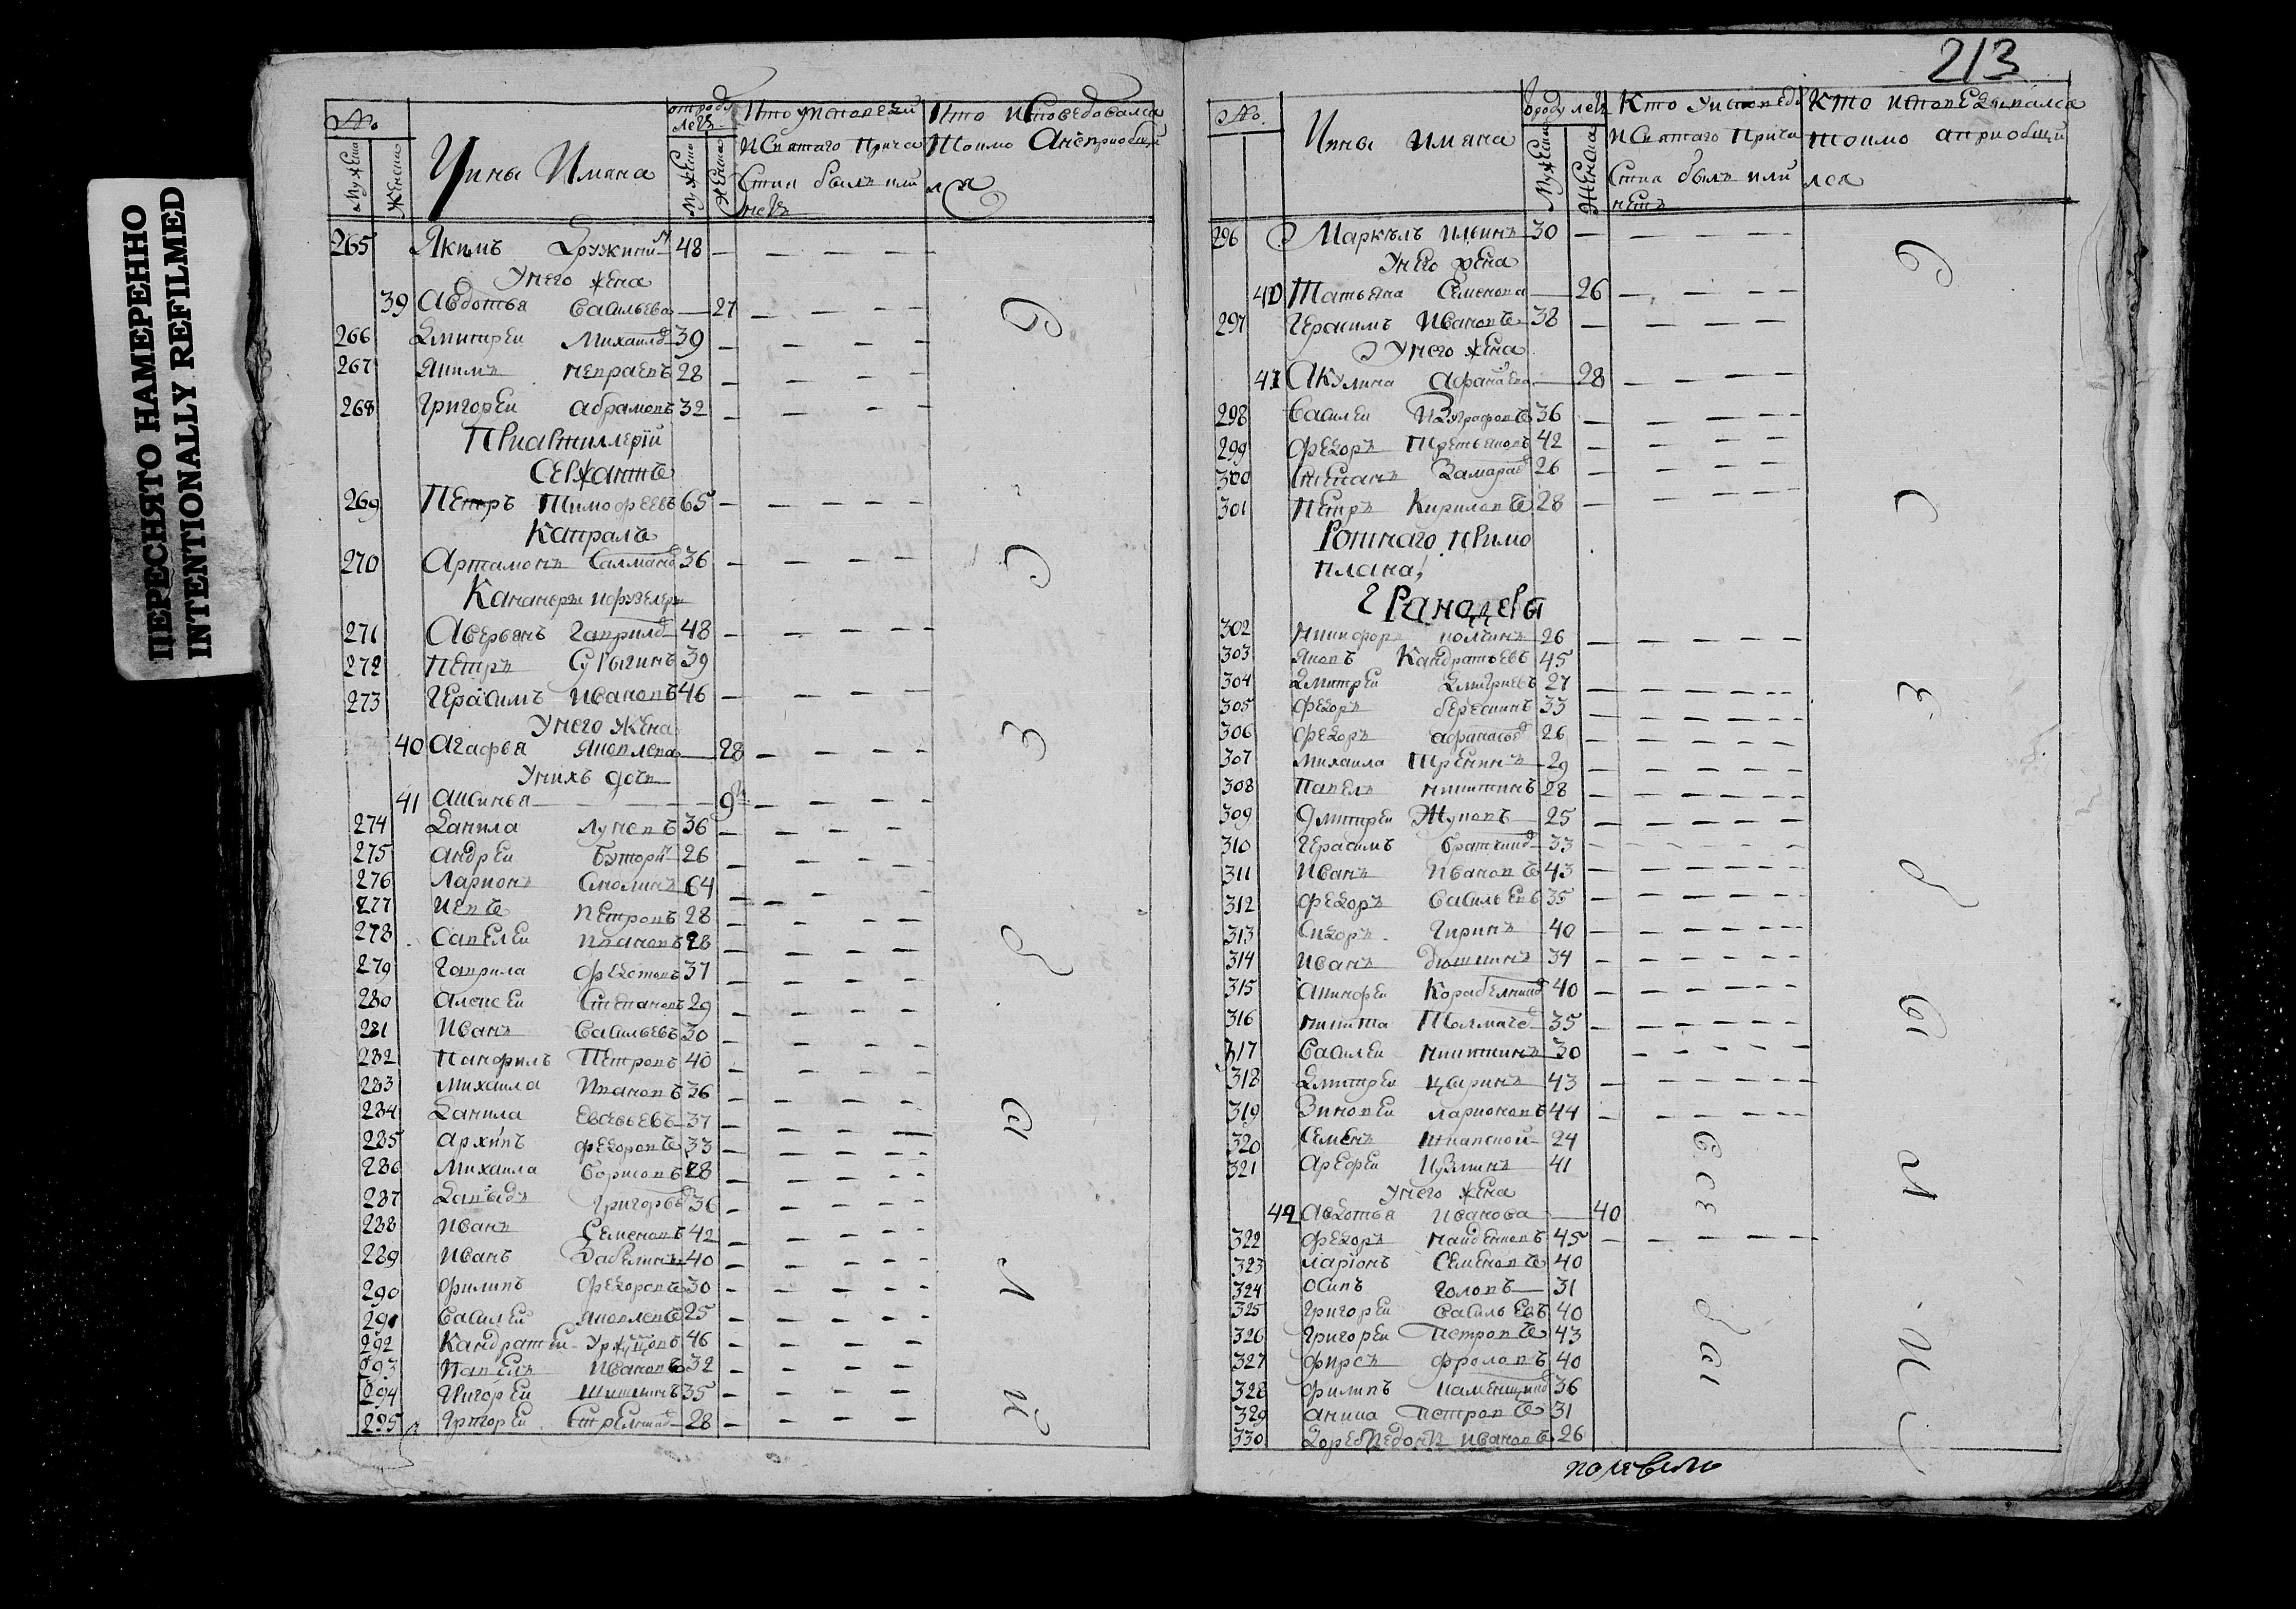 ПЕРЕСНЯТО НАМЕРЕННО
INTENTIONALLY REFILMED
213
№
Мужеска
Женска
Чины Имяна
отроду летъ
Мужеска
Женска
Кто уисповеди
ИСвятаго Прича
Стия былъ или
нетъ
Кто Исповедовался
Токмо Анеприобщи
лся
265 Якимъ Дружини 48
Унего жена
39 Авдотья Васильева 27
266 Дмитреи Михаило 39
267 Якимъ 28
268 Григореи Абрамовъ 32
Приартиллерїи
Сержантъ
269 Петръ Тимофеевъ 65
Капралъ
270 Артамонъ Салмано 36
Канонеры ифузелеры
271 Аверьянъ Гаврило 48
272 Петръ Сурыгинъ 39
273 Герасимъ Ивановъ 46
Унего Жена
40 Агафья Яковлева 28
Унихъ дочь
41 Аксинья 9
274 Данила Луневъ 36
275 Андреи Бутори 26
276 Ларионъ Смолинъ 64
277 Иевъ Петровъ 28
278 Савелеи Ивановъ 28
279 Гаврила Федотовъ 37
280 Алексеи Степановъ 29
281 Иванъ Васильевъ 30
282 Панфилъ Петровъ 40
283 Михаила Ивановъ 36
284 Данила Евсевьевъ 37
285 Архипъ Федоровъ 33
286 Михаила Борисовъ 28
287 Давыдъ Григорье 36
288 Иванъ Семеновъ 42
289 Иванъ Забелинъ 40
290 Филипъ Федоровъ 30
291 Василеи Яковлевъ 25
292 Кандратеи 46
293 Павелъ Ивановъ 32
294 Григореи Шишкинъ 35
295 Григореи Стрелнико 28
№
Чины имяна
вроду летъ
Мужеска
Женска
Кто Уисповеди
ИСвятаго Прича
Стия былъ или
нетъ
Кто исповедывался
токмо априобщи
лся
296 Маркелъ Ильинъ 30
Унего жена
40 Татьяна Семенова 26
297 Герасимъ Ивановъ 38
Унего жена
41 Акулина Афанасева 28
298 Василеи Изуграфовъ 36
299 Федоръ Третьяковъ 42
300 Степанъ Замарае 26
301 Петръ Кириловъ 28
Ротнаго примо
плана
Гранадеры
302 Никифоръ Колчинъ 26
303 Яковъ Кандратьевъ 45
304 Дмитреи Дмитриевъ 27
305 Федоръ Берескинъ 33
306 Федоръ Афанасье 26
307 Михаила Тренинъ 29
308 Павелъ Никитинъ 28
309 Дмитреи Жуковъ 25
310 Герасимъ Братчико 33
311 Иванъ Ивановъ 43
312 Федоръ Васильевъ 35
313 Сидоръ Гиринъ 40
314 Иванъ Дюшкинъ 34
315 Акинфеи Корабелнико 40
316 Никита Толмаче 35
317 Василеи Никитинъ 30
318 Дмитреи Цыринъ 43
319 Зиновеи Ларионовъ 44
320 Семенъ 24
321 Арефеи Кузминъ 41
Унего жена
42 Авдотья Иванова 40
322 Федоръ Наиденовъ 45
323 Ларїонъ Семеновъ 40
324 Осипъ Головъ 31
325 Григореи Васильевъ 40
326 Григореи Петровъ 43
327 Фирсъ Фроловъ 40
328 Филипъ Каменщико 36
329 Аника Петровъ 31
330 Ивановъ 26